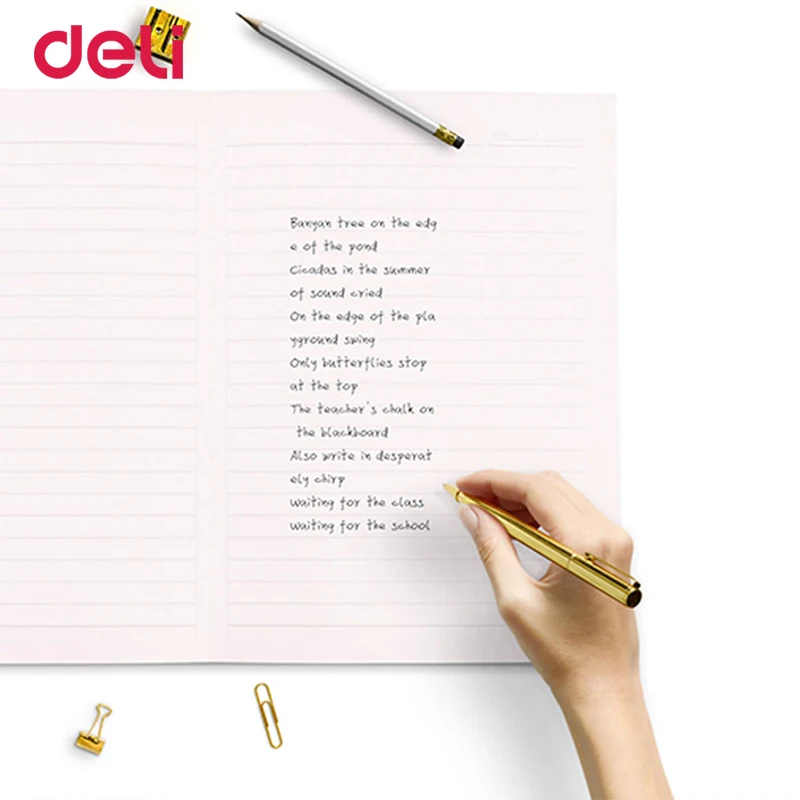 deli
Banyan tree on the edg
e of the pond
Cicadas in the summer
of sound cried
On the edge of the pla
yground swing
Only butterflies stop
at the top
The teacher's chalk on
the blackboard
Also write in desperat
ely chirp
Waiting for the class
Waiting for the school